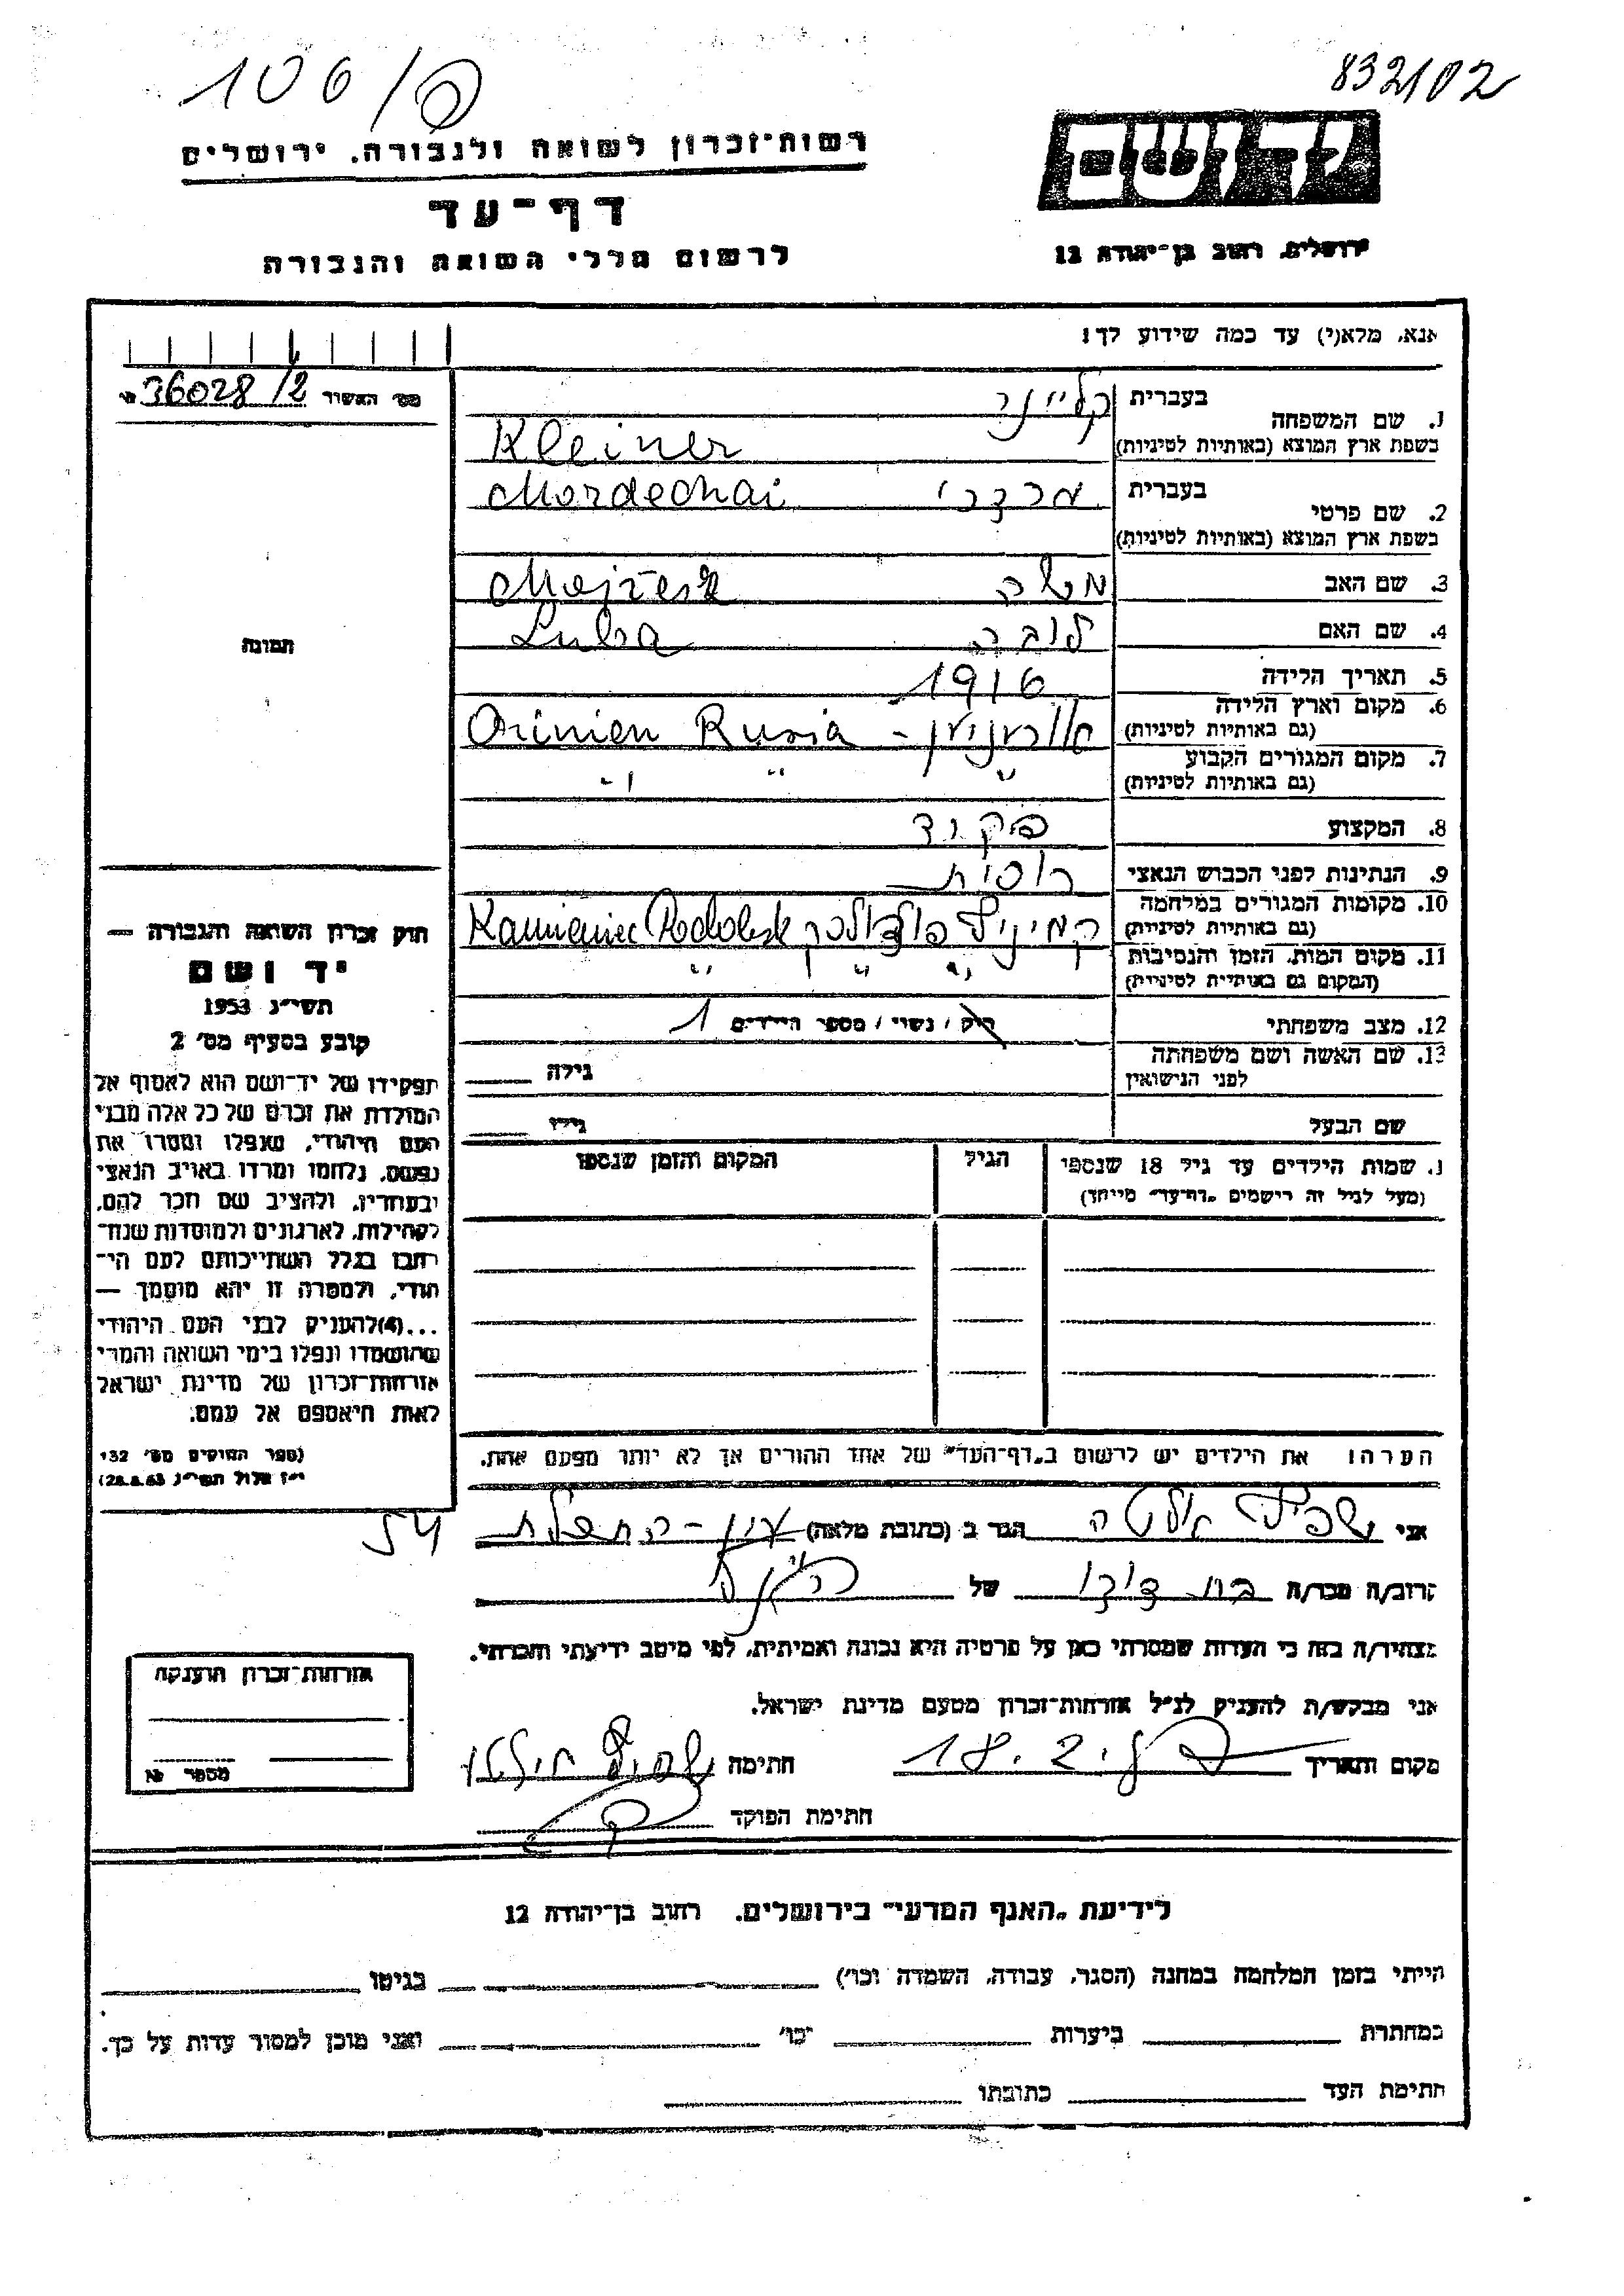 106/פ
832102
רשות־זכרון לשואה ולגבורה. ירושלים
ידושם
דף־עד
לרשום חללי השואה והגבורה
ירושלים. רחוב בן־יהודה 12
אנא, מלא(י) עד כמה שידוע לך:
מס׳ האשור 36028/2
1. שם המשפחה
בעברית קליינר
בשפת ארץ המוצא (באותיות לטיניות) Kleiner
2. שם פרטי
בעברית מרדכי Mordechai
בשפת ארץ המוצא (באותיות לטיניות)
3. שם האב משה Mojzesz
4. שם האם לובה Luba
5. תאריך הלידה 1916
6. מקום וארץ הלידה Orinien Rusia -
(גם באותיות לטיניות)
7. מקום המגורים הקבוע " " "
(גם באותיות לטיניות)
8. המקצוע פקיד
9. הנתינות לפני הכבוש הנאצי רוסית
10. מקומות המגורים במלחמה קמיניץ פודולסק Kamieniec Podolesk
(גם באותיות לטיניות)
11. מקום המות, הזמן והנסיבות " " "
(המקום גם באותיות לטיניות)
12. מצב משפחתי רוק / נשוי / מספר הילדים 1
13. שם האשה ושם משפחתה
לפני הנישואין
גילה
שם הבעל
גילו
שמות הילדים עד גיל 18 שנספו
(מעל לגיל זה רישמים „דף־עד״ מיוחד)
הגיל
המקום והזמן שנספו
הערה: את הילדים יש לרשום ב„דף־העד״ של אחד ההורים אך לא יותר מפעם אחת.
תמונה
חוק זכרון השואה והגבורה —
יד ושם
תשי״ג 1953
קובע בסעיף מס׳ 2
תפקידו של יד־ושם הוא לאסוף אל
המולדת את זכרם של כל אלה מבני
העם היהודי, שנפלו ומסרו את
נפשם, נלחמו ומרדו באויב הנאצי
ובעוזריו, ולהציב שם וזכר להם,
לקהילות, לארגונים ולמוסדות שנח־
רבו בגלל השתייכותם לעם הי־
הודי, ולמטרה זו יהא מוסמך —
...(4)להעניק לבני העם היהודי
שהושמדו ונפלו בימי השואה והמרי
אזרחות־זכרון של מדינת ישראל
לאות היאספם אל עמם.
(ספר החוקים מס׳ 132
י״ז אלול תשי״ג 28.8.53)
54
אני שפיץ הגר ב (כתובת מלאה) עין-התכלת
קרוב/ה מכר/ה בת דודו של
מצהיר/ה בזה כי העדות שמסרתי כאן על פרטיה היא נכונה ואמיתית, לפי מיטב ידיעתי והכרתי.
אני מבקש/ת להעניק לנ״ל אזרחות־זכרון מטעם מדינת ישראל.
מקום ותאריך 18.2. חתימה שפיץ
חתימת הפוקד
אזרחות־זכרון הוענקה
מספר №
לידיעת „האגף המדעי״ בירושלים. רחוב בן־יהודה 12
הייתי בזמן המלחמה במחנה (הסגר, עבודה, השמדה וכו׳) בגיטו
במחתרת ביערות וכו׳ ואני מוכן למסור עדות על כך.
חתימת העד כתובתו